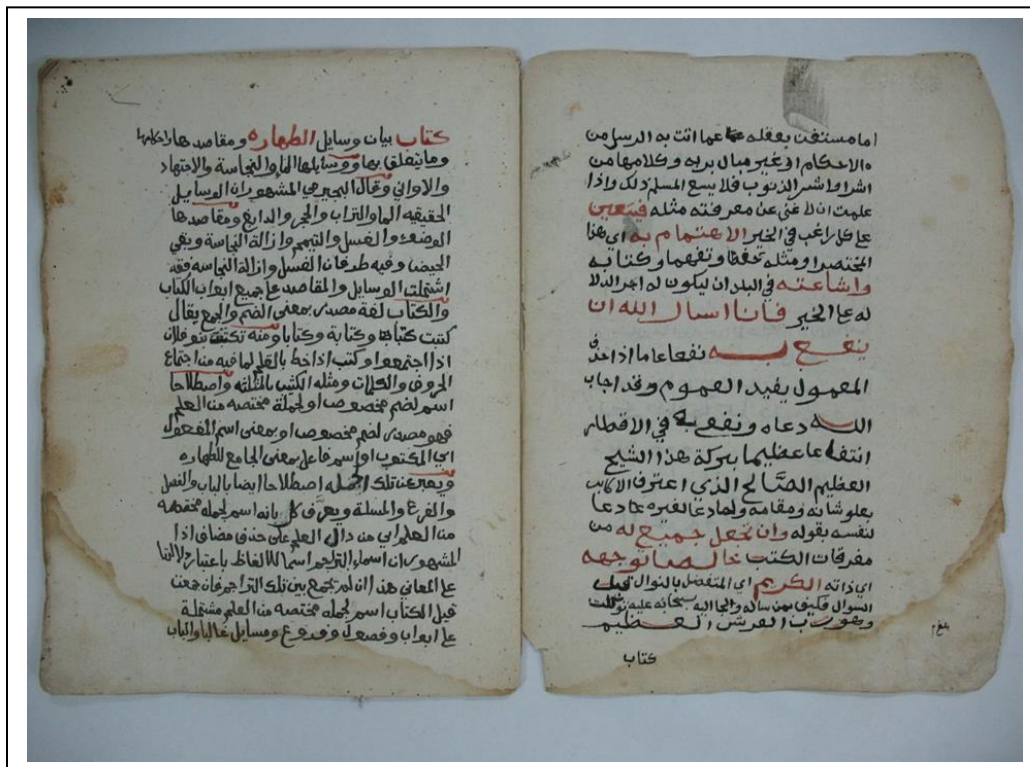 اما مستغن بعقله عما اتت به الرسل من
الاحكام او غير مبال بربه وكلامها من
اشر او اشر الذنوب فلا يسع المسلم ذلك واذا
علمت ان لا غنى عن معرفته مثله فيتعين
على كل راغب في الخير الاهتمام به اي هذا
المختصر او مثله تحفظا وتفهما وكتابه
واشاعته في البلدان ليكون له اجر الدلا
له على الخير فانا اسال الله ان
ينفع به نفعا عاما اذ حذف
المعمول يفيد العموم وقد اجاب
الله دعاه ونفع به في الاقطار
انتفاعا عظيما ببركة هذا الشيخ
العظيم الصالح الذي اعترف الاكابر
بعلو شانه ومقامه ولما دعا لغيره بما دعا
لنفسه بقوله وان تجعل جميع له من
مفرقات الكتب خالصا لوجهه
اي ذاته الكريم اي المتفضل بالنوال قبل
السوال فكيف بمن ساله والجا اليه سبحانه عليه توكلت
وهو رب العرش العظيم
كتاب
كتاب بيان وسايل الطهاره ومقاصدها واحكامها
وما يتعلق بها ووسايلها الما والنجاسة والاجتهاد
والاواني وقال البجيرمي المشهور ان الوسايل
الحقيقيه الما والتراب والحجر والدابغ ومقاصدها
الوضوء والغسل والتيمم وازالة النجاسة وبقي
الحيض وفيه طرفان الغسل وازالة النجاسه فقد
اشتملت الوسايل والمقاصد على جميع ابواب الكتاب
والكتاب لغة مصدر بمعنى الضم والجمع يقال
كتبت كتبا وكتابة وكتابا ومنه تكتبت بنو فلان
اذا اجتمعوا وكتب اذا خط بالقلم لما فيه من اجتماع
الحروف والكلمات ومثله الكثب بالمثلثه واصطلاحا
اسم لضم مخصوص او لجملة مختصه من العلم
فهو مصدر لضم مخصوص او بمعنى اسم المفعول
اي المكتوب او اسم فاعل بمعنى الجامع للطهاره
ويعبر عن تلك الجمله اصطلاحا ايضا بالباب والفصل
والفرع والمسلة ويعرف كل بانه اسم لجمله مختصه
من العلم اي من دال العلم على حذف مضاف اذا
المشهور ان اسماء التراجم اسما للالفاظ باعتبار دلالتها
على المعاني هذا ان لم تجمع بين تلك التراجم فان جمعت
قيل الكتاب اسم لجمله مختصه من العلم مشتملة
على ابواب وفصول وفروع ومسايل غالبا والباب